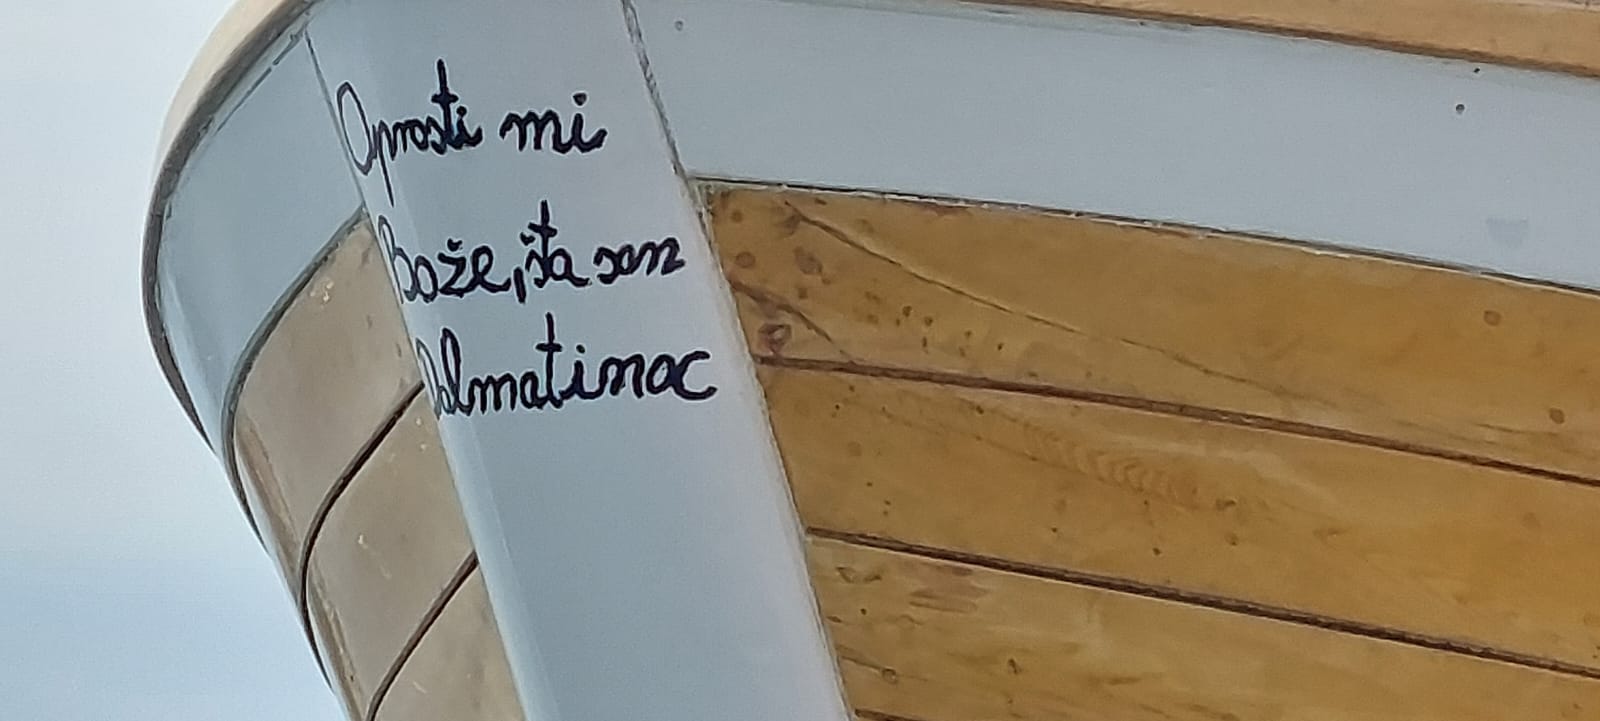 Oprosti mi
Bože, šta sam
Dalmatinac